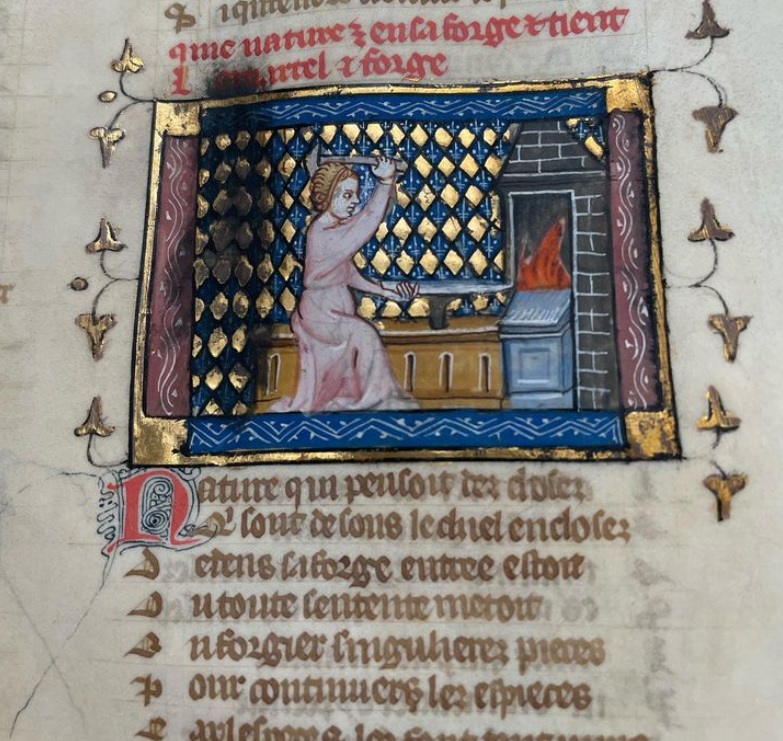 que nature z en sa forge & tient
martel & forge
Nature qui pensoit des choses
Qi sont desous le ciel encloses
Dedens sa forge entree estoit
Ou toute sentente metoit
En forgier singulieres pieces
Pour continuer les espieces